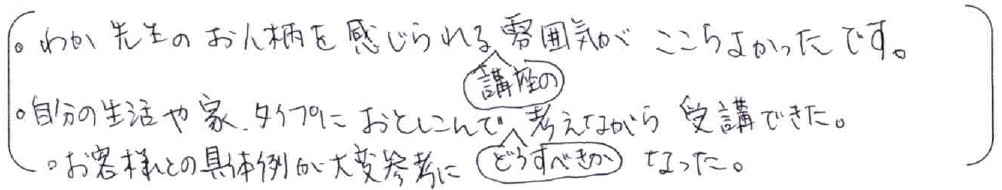 。わか先生のお人柄を感じられる講座の雰囲気がここちよかったです。
。自分の生活や家、タイプにおとしこんでどうすべきか考えながら受講できた。
。お客様との具体例が大変参考になった。